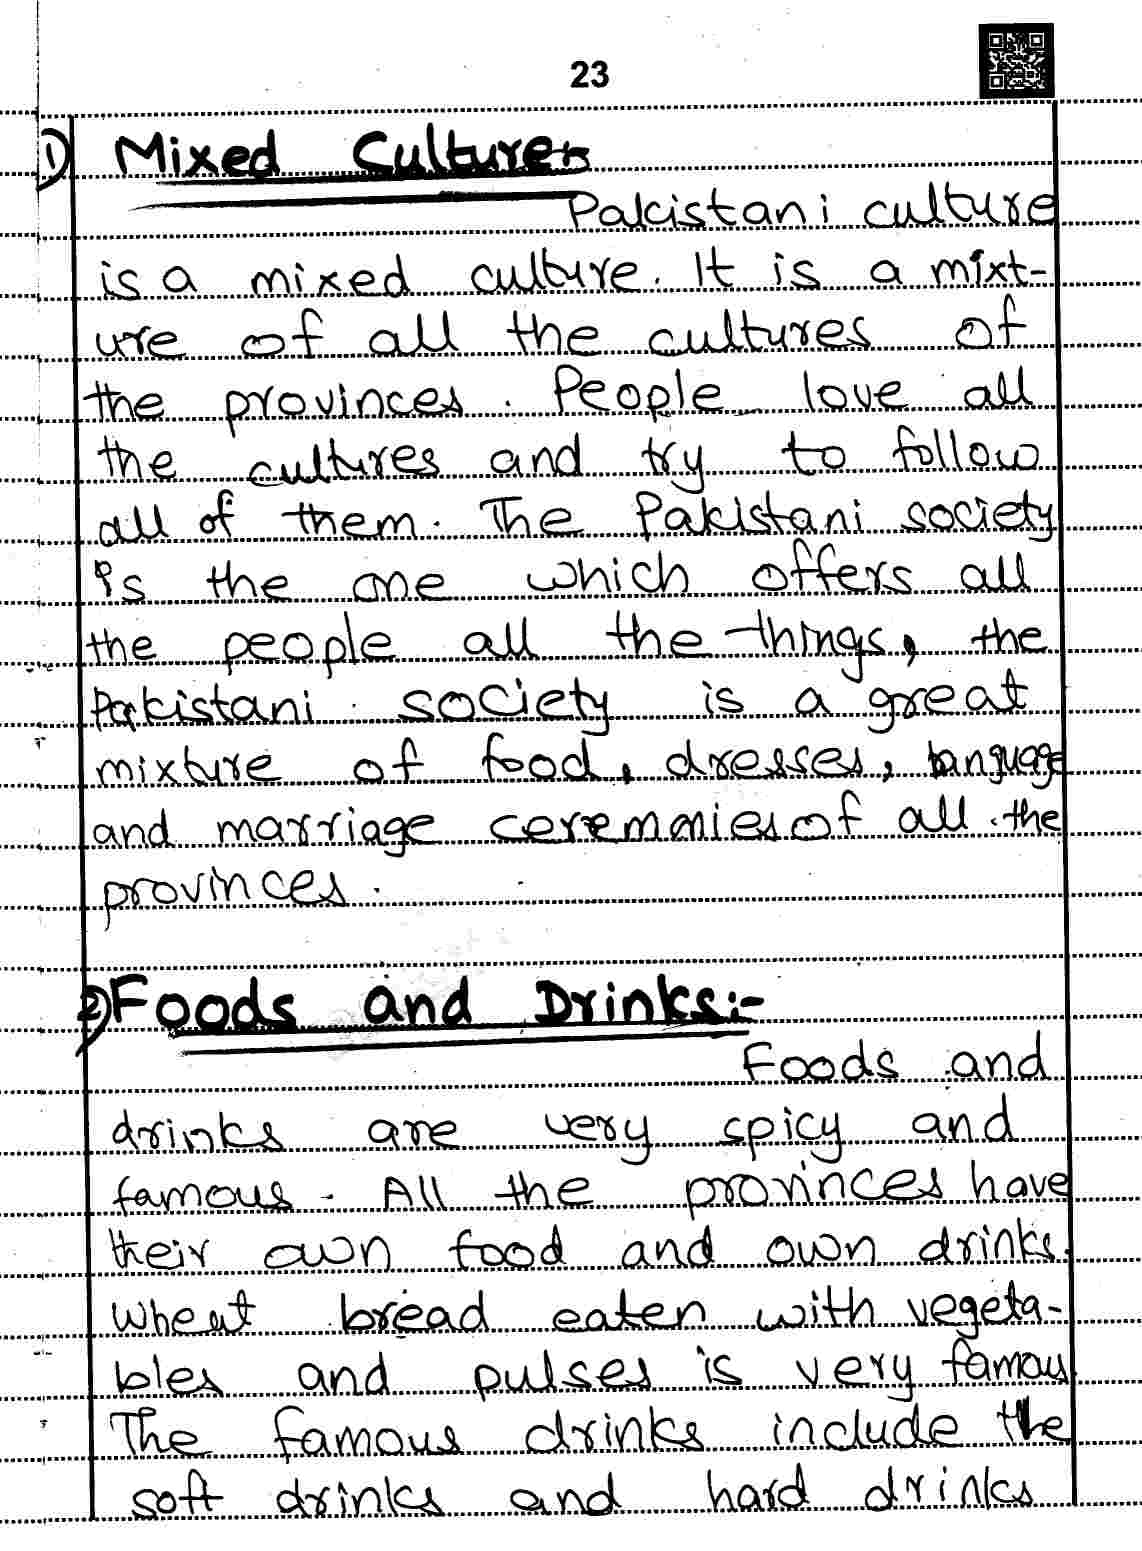 23
1) Mixed Culture:-
Pakistani culture
is a mixed culture. It is a mixt-
ure of all the cultures of
the provinces. People love all
the cultures and try to follow
all of them. The Pakistani society
is the one which offers all
the people all the things, the
Pakistani society is a great
mixture of food, dresses, language
and marriage ceremonies of all the
provinces.
2) Foods and Drinks:-
Foods and
drinks are very spicy and
famous. All the provinces have
their own food and own drinks.
Wheat bread eaten with vegeta-
bles and pulses is very famous
The famous drinks include the
soft drinks and hard drinks